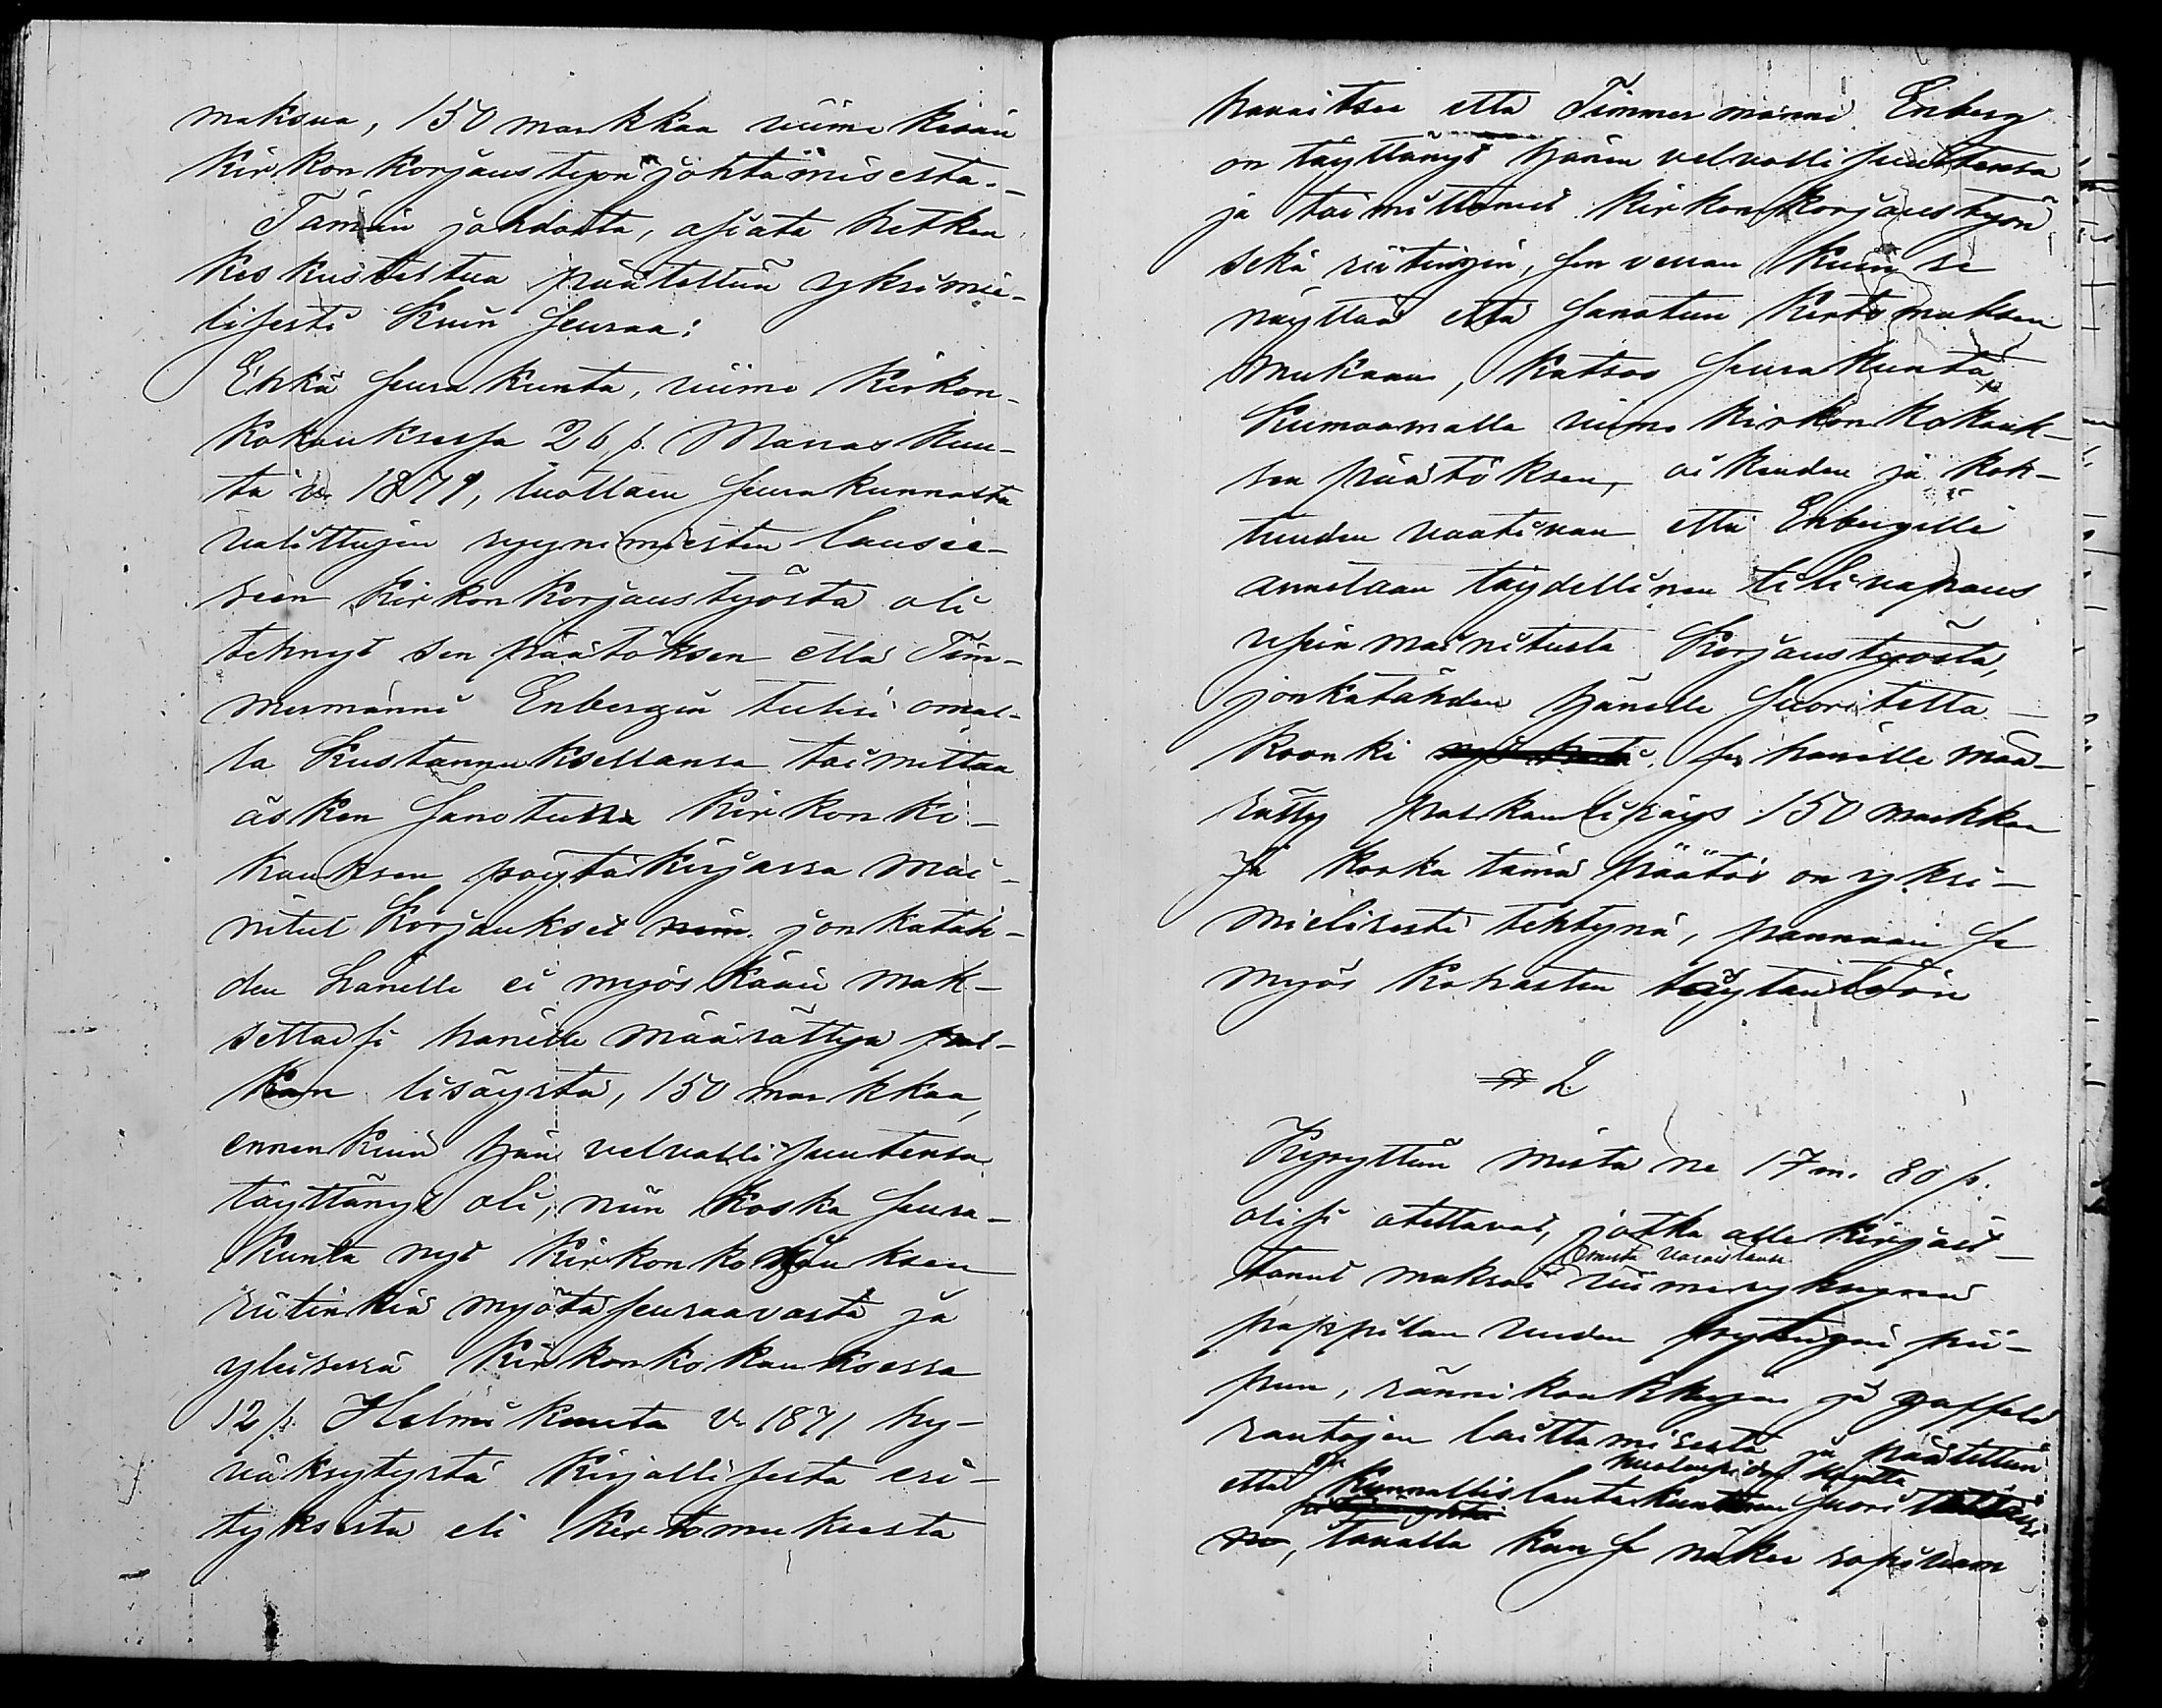 maksua, 150 markkaa viime kesän
Kirkon korjaustyön johtamisesta.-
Tämän johdosta, asiata hetken
keskusteltua päätettiin yksimie-
lisesti kuin seuraa:
Ehkä seurakunta, viime Kirkon-
kokouksessa 26 p. Marras kuu-
ta v. 1871, luottaen seurakunnasta
valittujen syynimiesten lausee-
seen Kirkon korjaustyöstä oli
tehnyt sen päätöksen että Tim-
mermanni Enbergin tulisi omal-
la kustannuksellansa toimittaa
äsken sanotussa Kirkonko-
kouksen pöytäkirjassa mai-
nitut korjaukset jonkatäh-
den hänelle ei myöskään mak-
settaisi hänelle määrättyä pal-
kan lisäystä, 150 markkaa,
ennenkuin hän velvollisuutensa
täyttänyt oli, niin koska seura-
kunta nyt Kirkonkokouksen
riitinkiä myötäseuraavasta ja
yleisessä Kirkonkokouksessa
12 p. Helmikuuta v. 1871 hy-
väksytystä kirjallisesta esi-
tyksestä eli kertomuksesta
havaitsee että Timmermanni Enberg
on täyttänyt hänen velvollisuutensa
ja toimittanut Kirkon korjaustyön
sekä riitingin, sen verran kuin se
näyttää että sanotun kertomuksen
mukaan, katsoo seurakunta
kumoamalla viime kirkonkokouk-
sen päätöksen, oikeuden ja koh-
tuuden vaativan että Enbergille
annetaan täydellinen tilivapaus
usein mainitusta korjaustyöstä,
jonkatähden hänelle suoritetta-
koonki se hänelle mää-
rätty palkanlisäys 150 markkaa
Ja koska tämä päätös on yksi-
mielisesti tehtynä, pannaan se
myös kohastan täytäntöön
§ 2
Kysyttiin mista ne 17 m. 80 p.
olisi otettavat, jotka allekirjoit-
omista varoistansa
tanut maksoi viime syksynä
pappilan uuden pii-
pun, ränni koukkujen ja
rautojen laittamisesta ja päätettiin
että kunnallislautakunnan
tavalla kun se näkee sopivaan